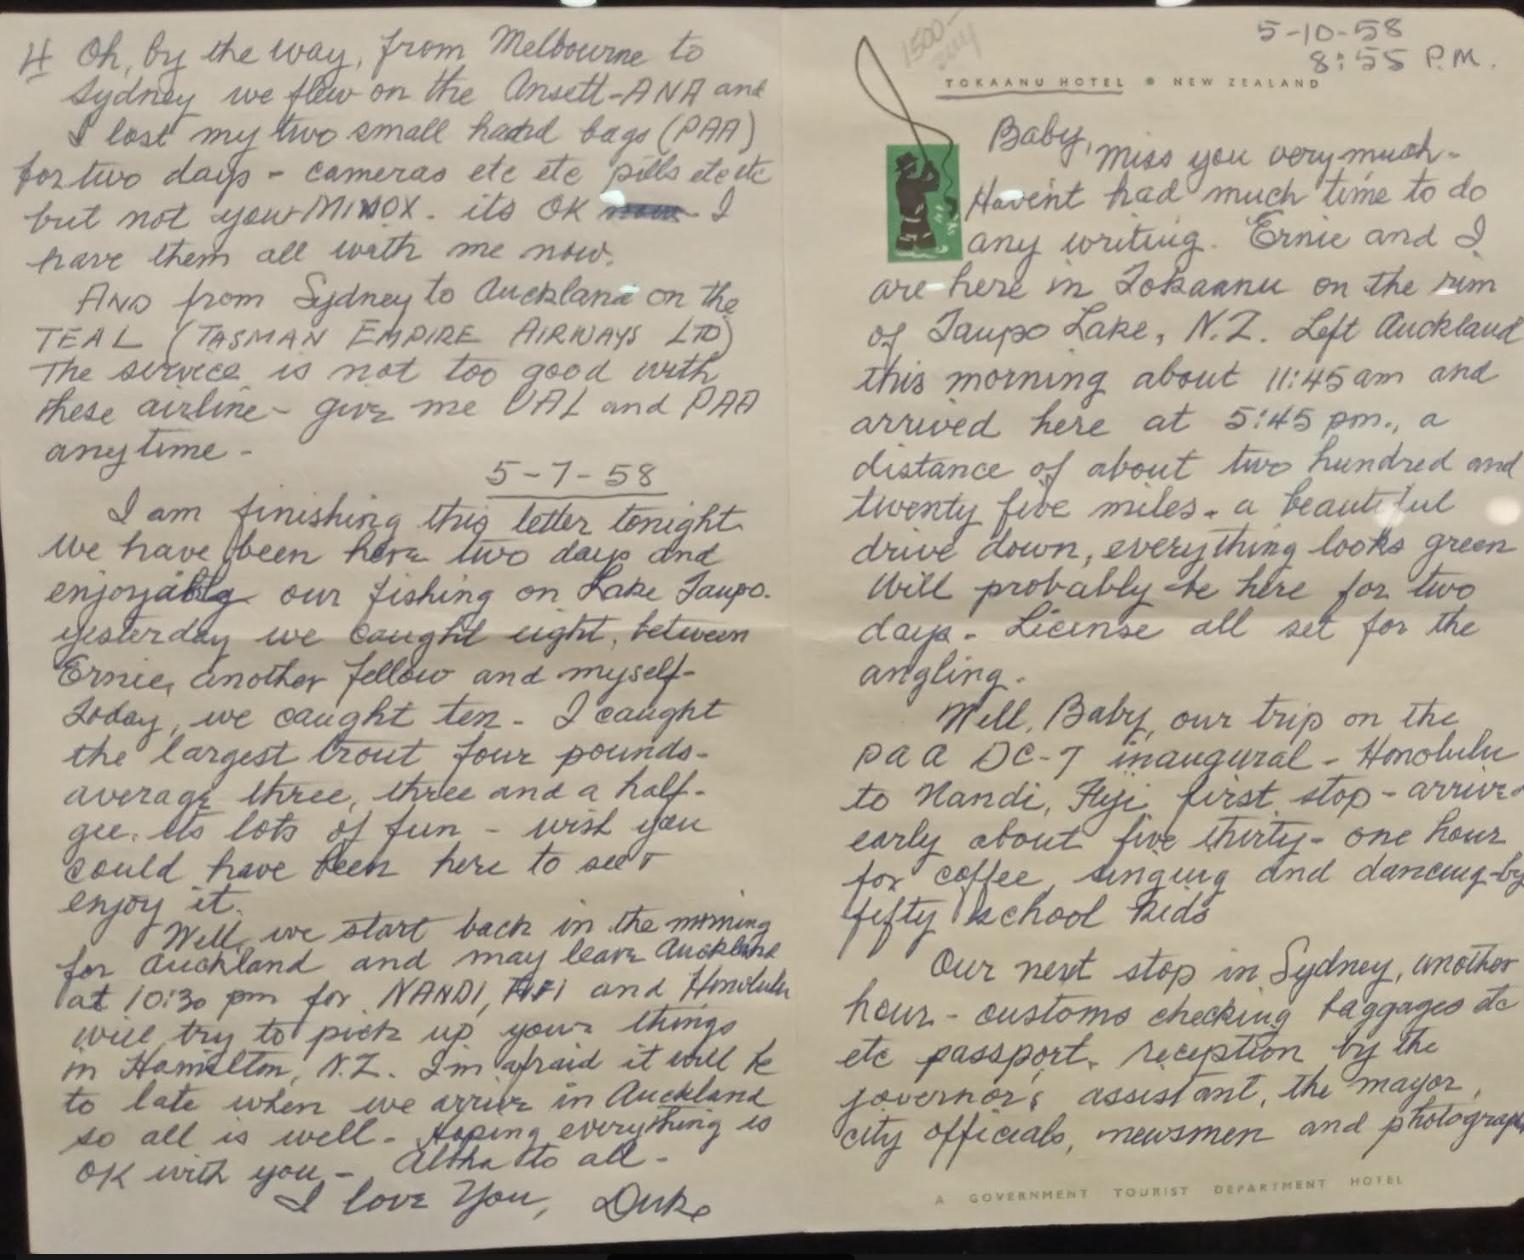 4 Oh, by the way, from Melbourne to
Sydney we flew on the Ansett-ANA and
I lost my two small hand bags (PAA)
for two days - cameras etc etc pills etc etc
but not your MINOX. its OK I
have them all with me now.
AND from Sydney to Auckland on the
TEAL (TASMAN EMPIRE AIRWAYS LTD)
The service is not too good with
these airline - give me UAL and PAA
anytime -
5-7-58
I am finishing this letter tonight
We have been here two days and
our fishing on Lake Taupo.
yesterday we caught eight, between
Ernie, another fellow and myself-
Today, we caught ten - I caught
the largest trout four pounds-
average three, three and a half-
gee. its lots of fun - wish you
could have been here to see +
enjoy it.
Well, we start back in the morning
for Auckland and may leave Auckland
at 10:30 pm for NANDI, FIJI and Honolulu
will try to pick up your things
in Hamilton, N.Z. I'm afraid it will be
to late when we arrive in Auckland
so all is well - Hoping everything is
OK with you - Aloha to all -
I love You, Duke
1500-
5-10-58
8:55 P.M.
TOKAANU HOTEL • NEW ZEALAND
Baby, miss you very much-
Havent had much time to do
any writing. Ernie and I
are here in Tokaanu on the rim
of Taupo Lake, N.Z. Left Auckland
this morning about 11:45 am and
arrived here at 5:45 pm., a
distance of about two hundred and
twenty five miles - a beautiful
drive down, everything looks green
Will probably be here for two
days - License all set for the
angling.
Well, Baby, our trip on the
PAA DC-7 inaugural - Honolulu
to Nandi, Fiji first stop - arrive
early about five thirty - one hour
for coffee, singing and dancing-by
fifty school kids
Our next stop in Sydney, another
hour - customs checking baggages etc
etc passport - reception by the
governor's assistant, the mayor,
city officials, newsmen and photograph
A GOVERNMENT TOURIST DEPARTMENT HOTEL